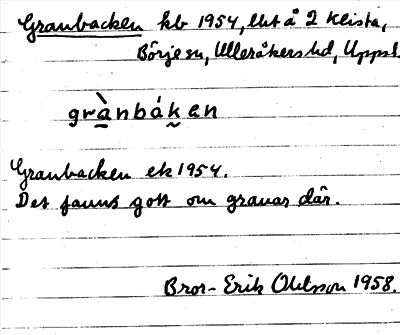 Granbacken kb 1954, lht å 2 Klista,
Börje sn, Ulleråkers hd, Uppsl.
grànbáken
Granbacken ek 1954.
Det fanns gott om granar där.
Bror-Erik Ohlsson 1958.